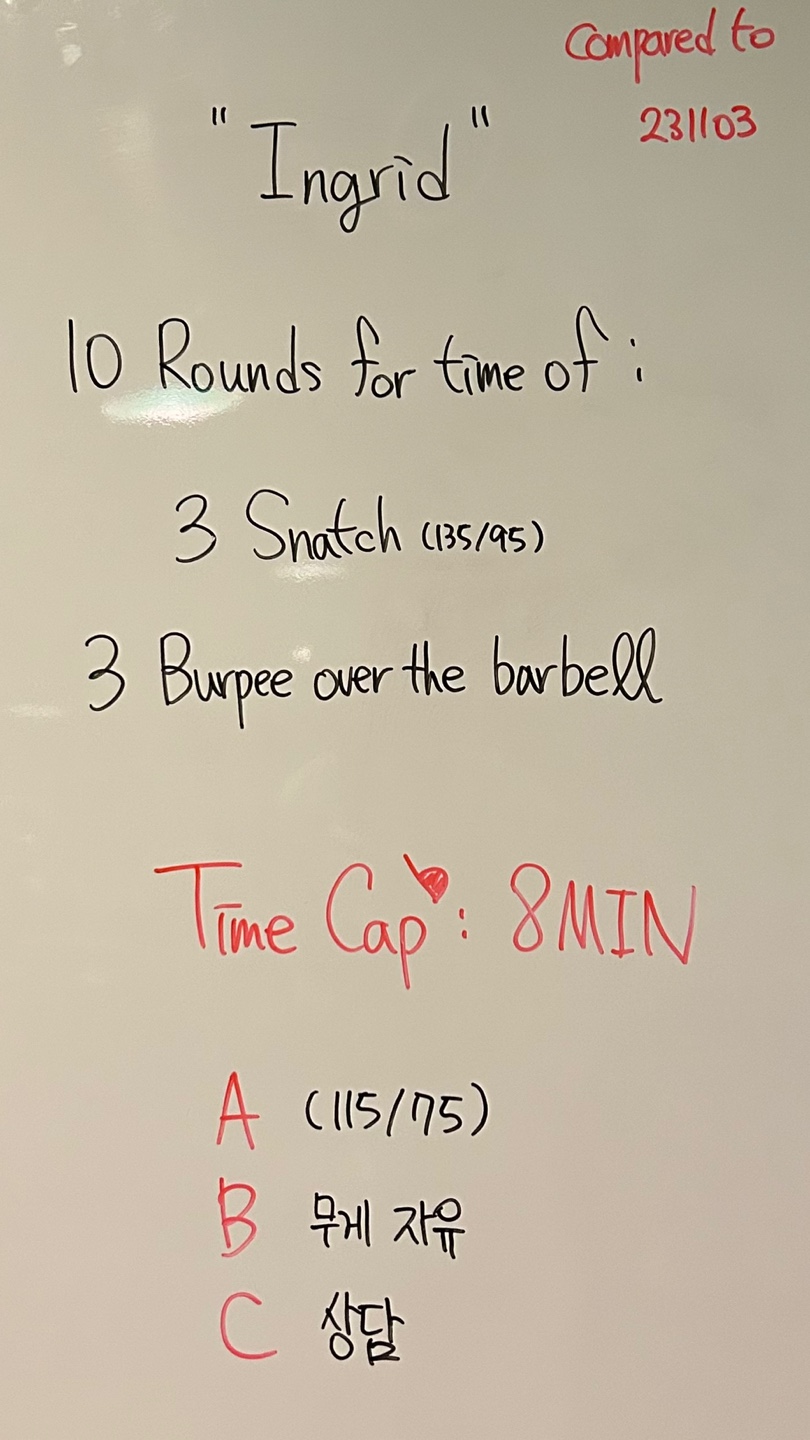 Compared to
231103
"Ingrid"
10 Rounds for time of :
3 Snatch (135/95)
3 Burpee over the barbell
Time Cap : 8MIN
A (115/75)
B 무게 자유
C 상담